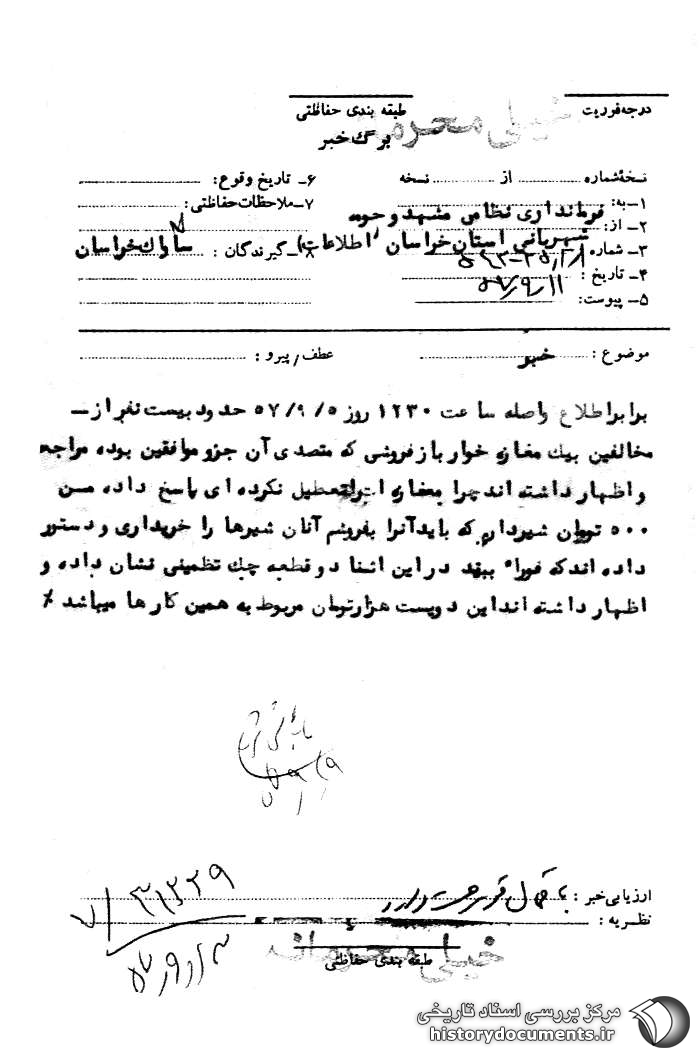 درجه فوریت
طبقه بندی حفاظتی
خیلی محرمانه
برگ خبر
نسخه شماره ........ از ........ نسخه
۱ـ به: فرمانداری نظامی مشهد و حومه
۲ـ از: شهربانی استان خراسان (اطلاعات)
۳ـ شماره
۴ـ تاریخ : ۵۷/۹/۱۱
۵ـ پیوست:
۶ـ تاریخ وقوع:
۷ـ ملاحظات حفاظتی:
۸ـ گیرندگان : ساواک خراسان
موضوع : خبر
عطف / پیرو :
برابر اطلاع واصله ساعت ۱۲۳۰ روز ۵۷/۹/۵ حدود بیست نفر از ـ
مخالفین بیک مغازه خوار بار فروشی که متصدی آن جزو موافقین بوده مراجعه
و اظهار داشته اند چرا مغازه ات را تعطیل نکرده ای پاسخ داده من
۵۰۰ تومان شیر دارم که باید آنرا بفروشم آنان شیرها را خریداری و دستور
داده اند که فورا" ببندد در این اثنا دو قطعه چک تضمینی نشان داده و
اظهار داشته اند این دویست هزار تومان مربوط به همین کارها میباشد ٪
ارزیابی خبر :
نظریه :
۷/۳۱۲۲۹
خیلی محرمانه
طبقه بندی حفاظتی
مرکز بررسی اسناد تاریخی
historydocuments.ir